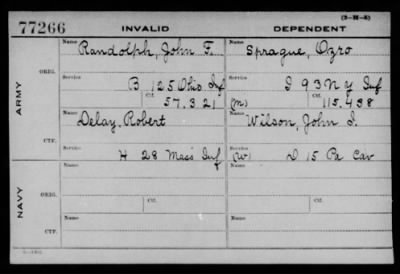 (3-M-6)
77266 INVALID DEPENDENT
Name Randolph, John F. Name Sprague, Ozro
ORIG.
Service B 125 Ohio Inf Service I 93 N Y Inf
Ctf. 57.321 (m) Ctf. 115.438
ARMY
Name Delay, Robert Name Wilson, John I.
CTF.
Service H 28 Mass Inf Service (w) D 15 Pa Cav
Name Name
NAVY
ORIG. Ctf. Ctf.
Name Name
CTF.